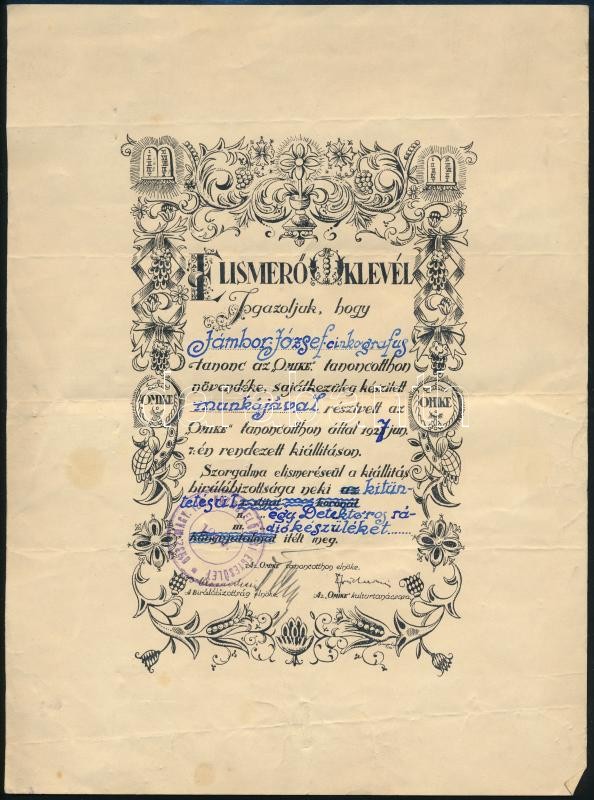 ELISMERŐ OKLEVÉL
Igazoljuk, hogy
Jámbor József cinkografus
tanonc az „OMIKE" tanoncotthon
növendéke, sajátkezüleg készített
munkájával résztvett az
„OMIKE" tanoncotthon által 1927 jun.
7.-én rendezett kiállításon.
Szorgalma elismeréseül a kiállítás
bírálóbizottsága neki az kitün-
tetésül
egy Detektoros rá-
III. dió készüléket......
könyvjutalmat itélt meg.
Az „OMIKE" tanoncotthon elnöke.
A Bírálóbizottság elnöke.
Az „OMIKE" kulturtanácsosa.
OMIKE
OMIKE